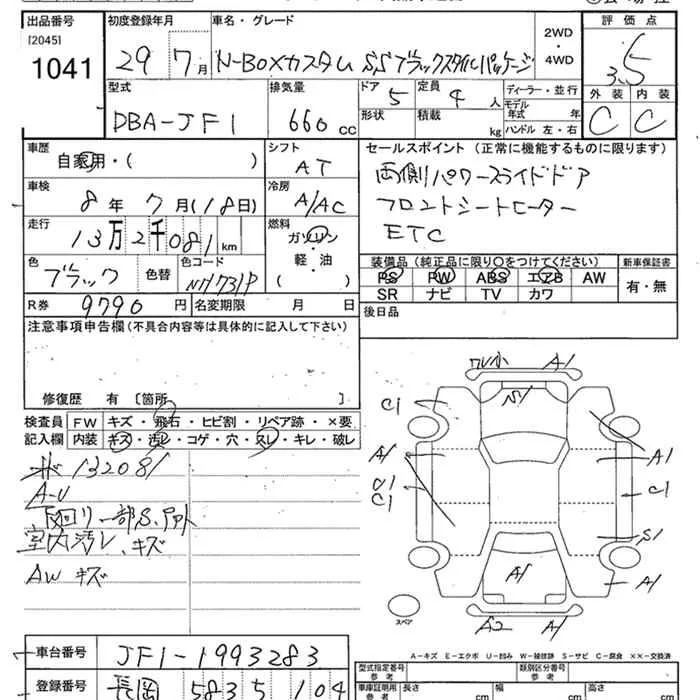 出品番号 初度登録年月 車名・グレード 2WD・4WD 評価点
[2045]
1041 29 7月 N-BOXカスタム SSブラックスタイルパッケージ 3.5
型式 排気量 ドア 定員 ディーラー・並行 外装 内装
DBA-JF1 660cc 5 4人 モデル年式 年 C C
形状 積載 kg ハンドル 左・右
車歴 シフト セールスポイント (正常に機能するものに限ります)
自家用・( ) AT 両側パワースライドドア
車検 冷房 フロントシートヒーター
8年7月(18日) A/AC ETC
走行 燃料
13万2千081km ガソリン・軽・油 ( )
装備品 (純正品に限り○をつけてください) 新車保証書
色 色替 色コード PS PW ABS エアB AW 有・無
ブラック NH731P SR ナビ TV カワ
R券 9790円 名変期限 月 日 後日品
注意事項申告欄 (不具合内容等は具体的に記入して下さい)
修復歴 有 〔箇所 〕
検査員記入欄 FW キズ・飛石・ヒビ割・リペア跡・×要
内装 キズ・汚レ・コゲ・穴・スレ・キレ・破レ
132081
A-U
下回り一部S、
室内汚レ、キズ
AW キズ
A1
S1
C1
A1 A1
U1
C1 C1
S1
A1 A1
スペア
A2 A1
A-キズ E-エクボ U-凹み W-補修跡 S-サビ C-腐食 XX-交換済
車台番号 JF1-1993283
型式指定番号 参考 類別区分番号 参考
登録番号 長岡 583 5 104
車庫証明用 参考 長さ cm 幅 cm 高さ cm